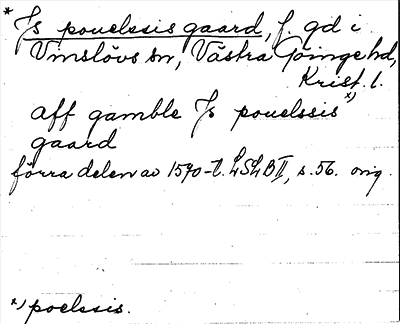 * Js pouelssis gaard, f. gd i
Vinslövs sn, Västra Göinge hd,
Krist. l.
aff gamble Js pouelssis x)
gaard
förra delen av 1590-t. LSLB II, s. 56. orig.
x) poelssis.